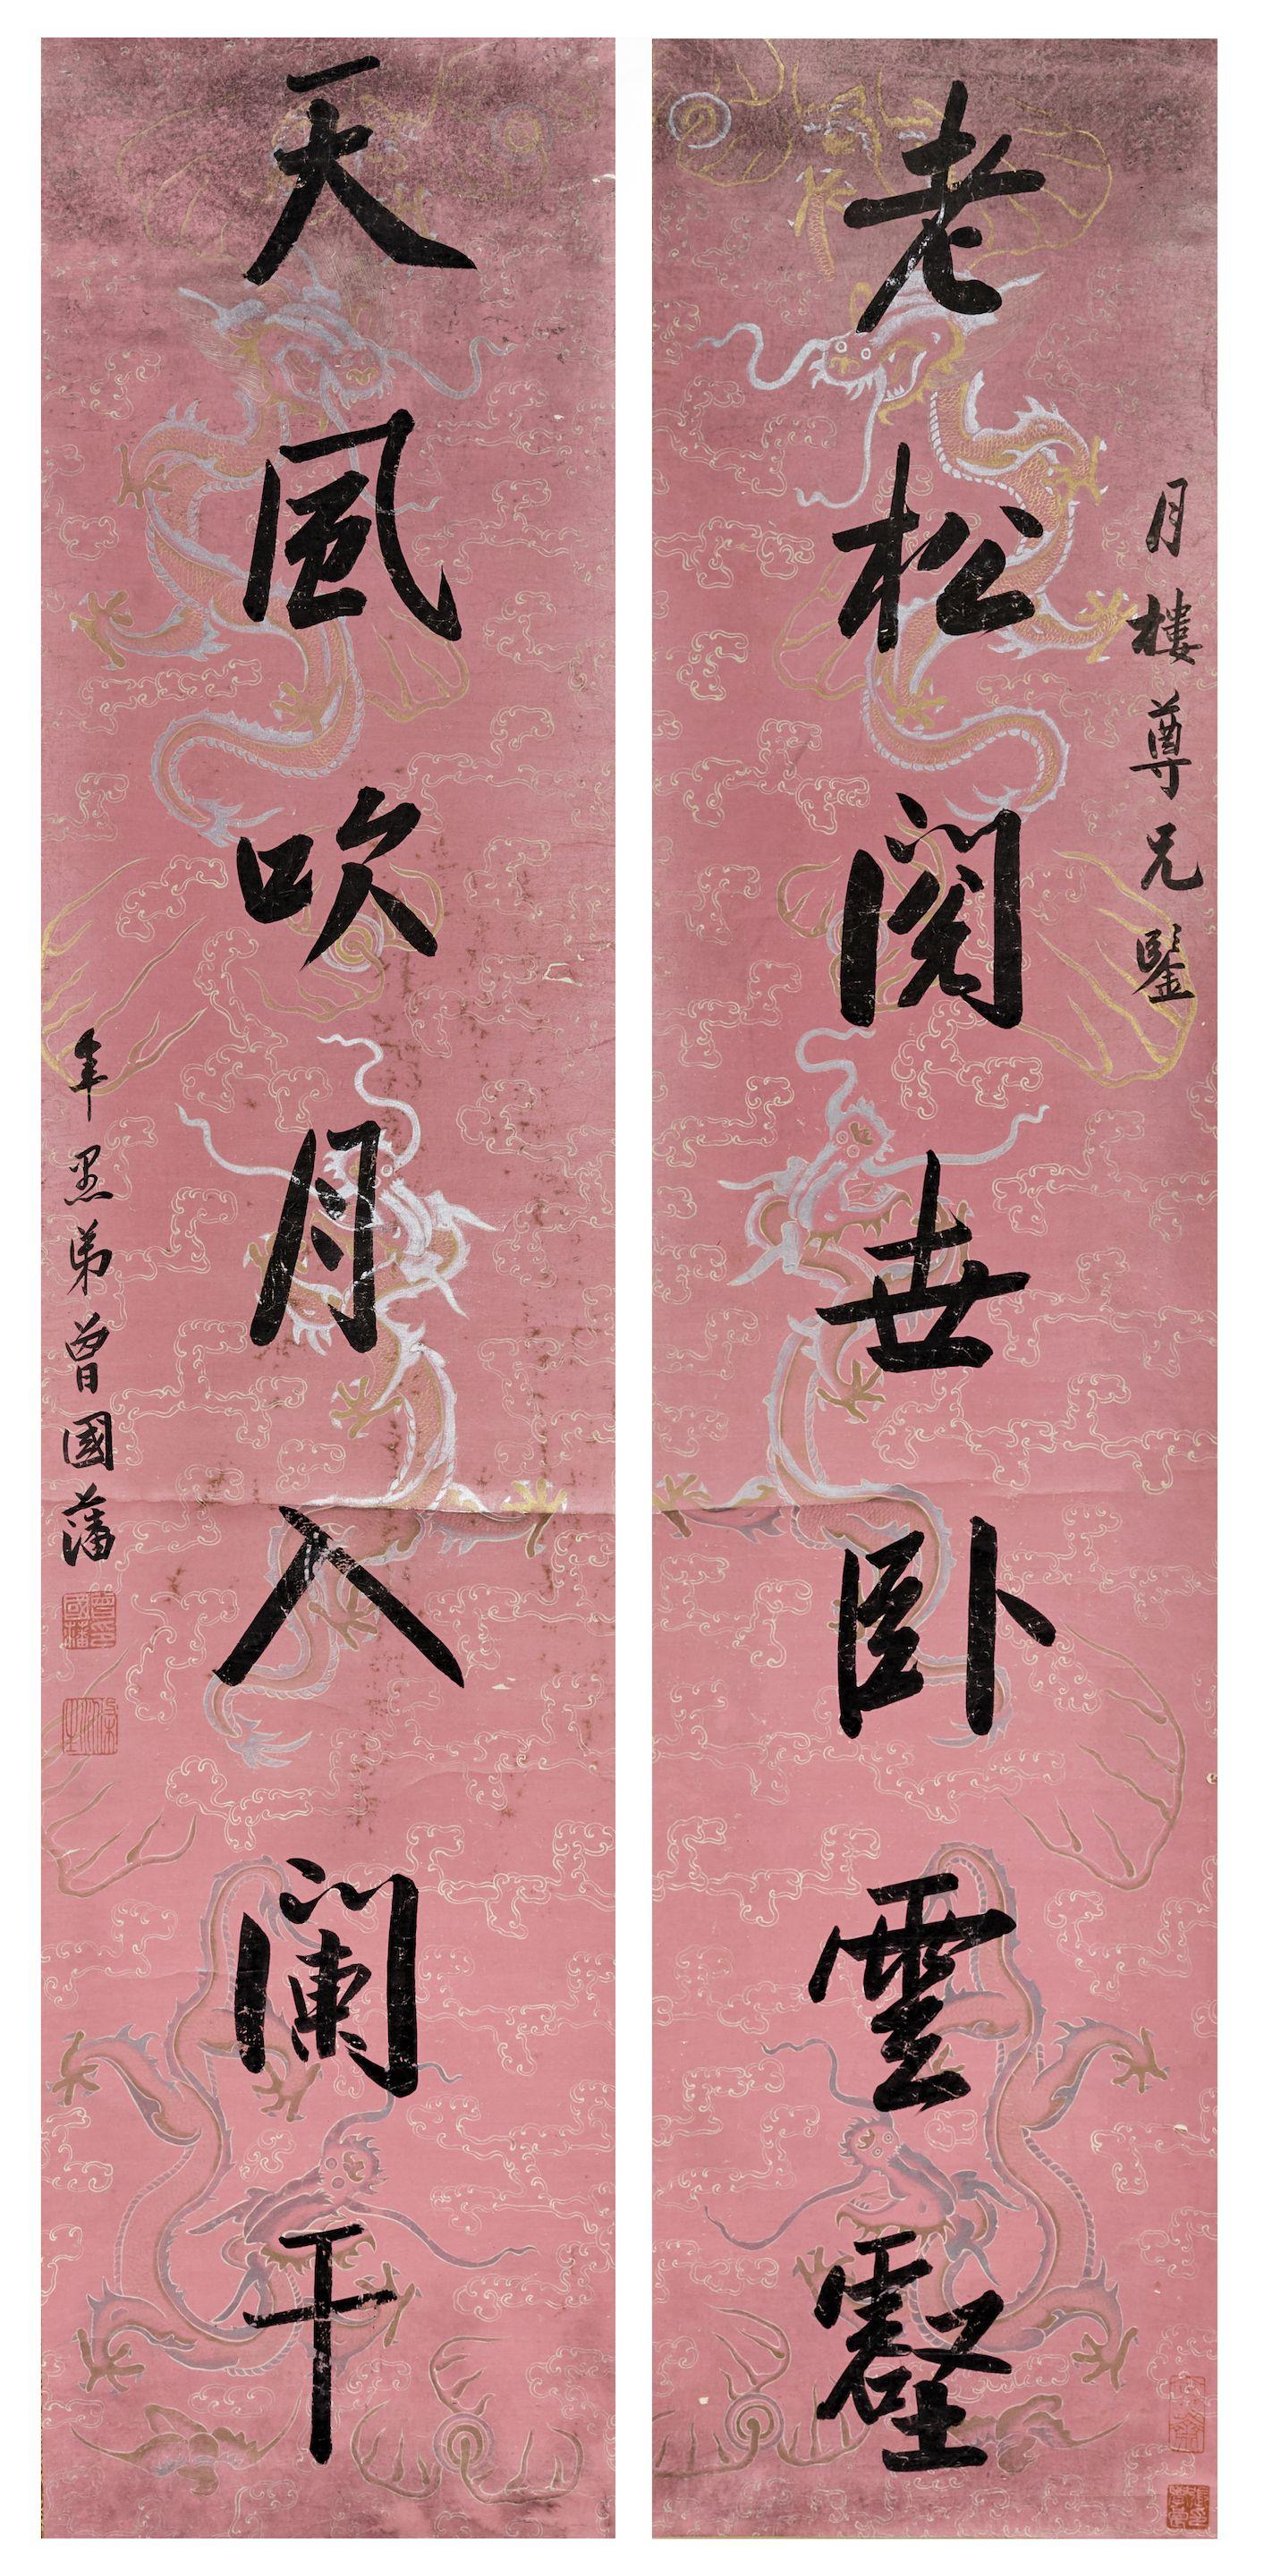 月樓尊兄鑒
老松閱世卧雲壑
天風吹月入闌干
年愚弟曾國藩